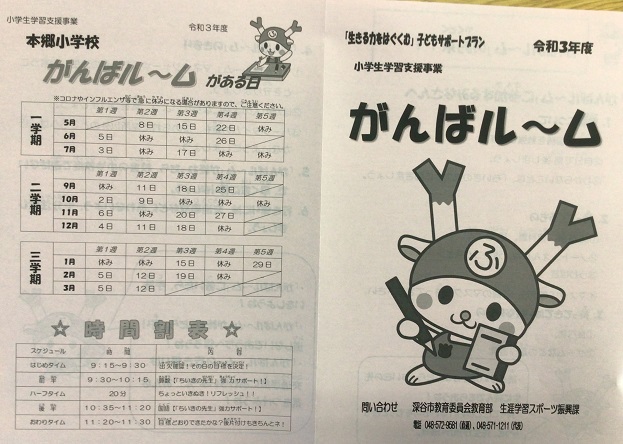 小学生学習支援事業
令和3年度
本郷小学校
がんばル～ム がある日
※コロナやインフルエンザ等で急に休みになる場合がありますので、ご注意ください。
一学期
第1週 第2週 第3週 第4週 第5週
5月 8日 15日 22日 休み
6月 5日 休み 休み 26日
7月 3日 休み 17日 休み
二学期
第1週 第2週 第3週 第4週 第5週
9月 休み 11日 18日 25日
10月 2日 9日 休み 休み 休み
11月 6日 休み 20日 27日
12月 4日 11日 18日 休み
三学期
第1週 第2週 第3週 第4週 第5週
1月 休み 休み 15日 休み 29日
2月 5日 12日 19日 休み
3月 5日 12日
☆ 時間割表 ☆
スケジュール 時間 内容
はじめタイム 9:15～9:30 出欠確認!その日の目標を決定!
9:30～10:15 算数【「ちいきの先生」強力サポート!】
ハーフタイム 20分 ちょっといきぬき!リフレッシュ!!
10:35～11:20 国語【「ちいきの先生」強力サポート!】
おわりタイム 11:20～11:30 目標どおりできたかな?後片付けもきちんとネ!
「生きる力をはぐくむ」子どもサポートプラン
令和3年度
小学生学習支援事業
がんばル～ム
ふ
問い合わせ 深谷市教育委員会教育部 生涯学習スポーツ振興課
電話 048-572-9581(直通)、048-571-1211(代表)